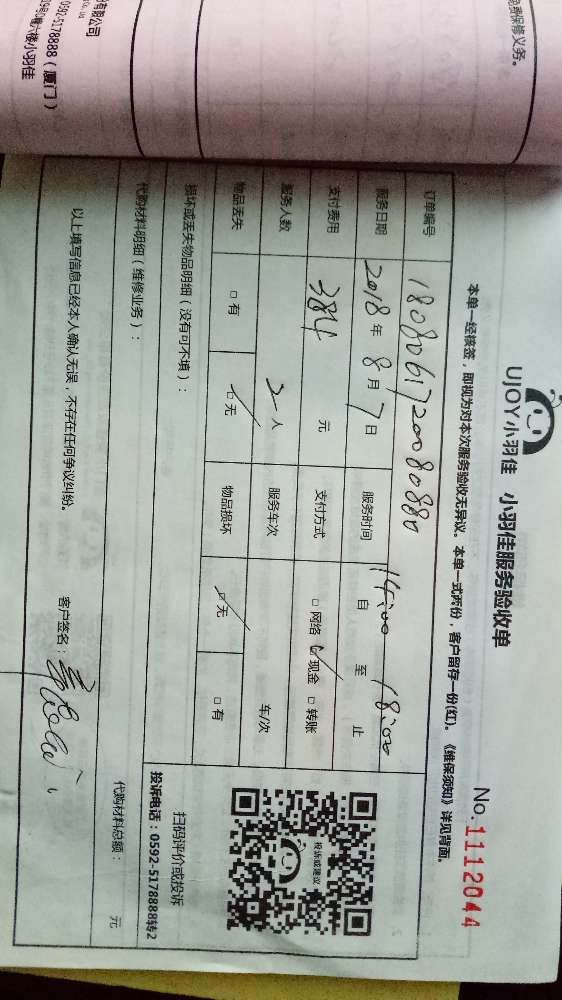 免费保修义务。
份有限公司
0592-5178888（厦门）
UJOY小羽佳 小羽佳服务验收单
No.1112044
本单一经核签，即视为对本次服务验收无异议。本单一式两份，客户留存一份(红)。《维保须知》详见背面。
订单编号 1808061720080880
服务日期 2018年8月7日 服务时间 14:00 自 至 18:00 止
支付费用 384 元 支付方式 □网络 ☑现金 □转账
服务人数 2人 服务车次 车/次
物品丢失 □有 ☑无 物品损坏 ☑无 □有
损坏或丢失物品明细（没有可不填）：
代购材料明细（维修业务）：
代购材料总额： 元
以上填写信息已经本人确认无误，不存在任何争议纠纷。
客户签名：
投诉或建议
扫码评价或投诉
投诉电话：0592-5178888转2